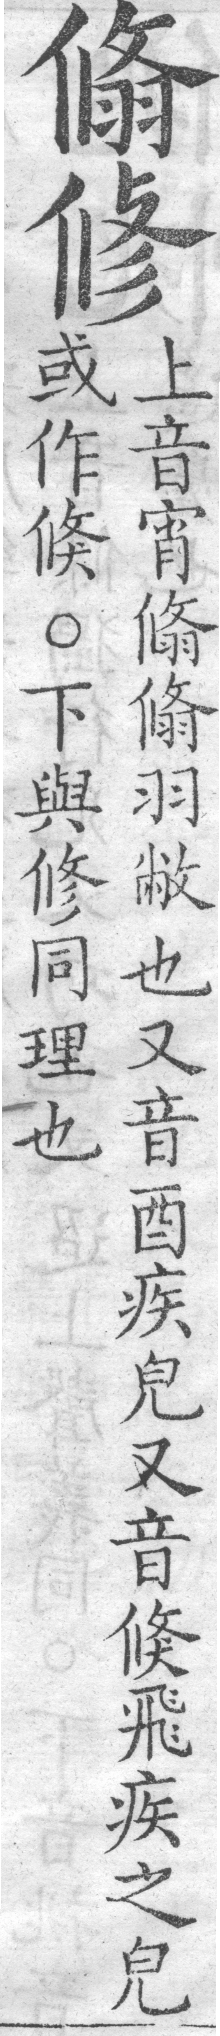 翛修
上音宵翛翛羽敝也又音酉疾皃又音倏飛疾之皃
或作倏○下與修同理也